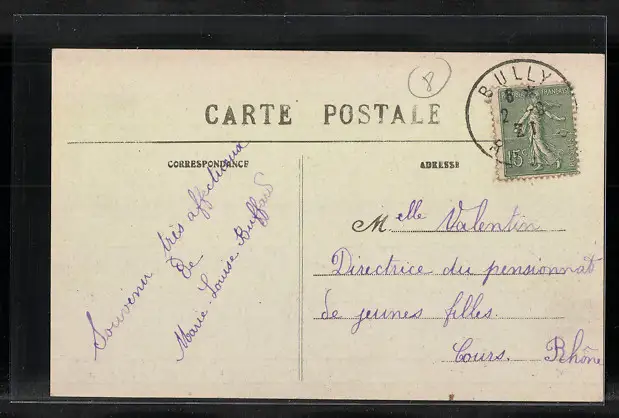 8
CARTE POSTALE
BULLY
15c
CORRESPONDANCE
ADRESSE
Souvenir très affectueux
De
Marie-Louise Buffard
Melle Valentin
Directrice du pensionnat
de jeunes filles.
Cours. Rhône